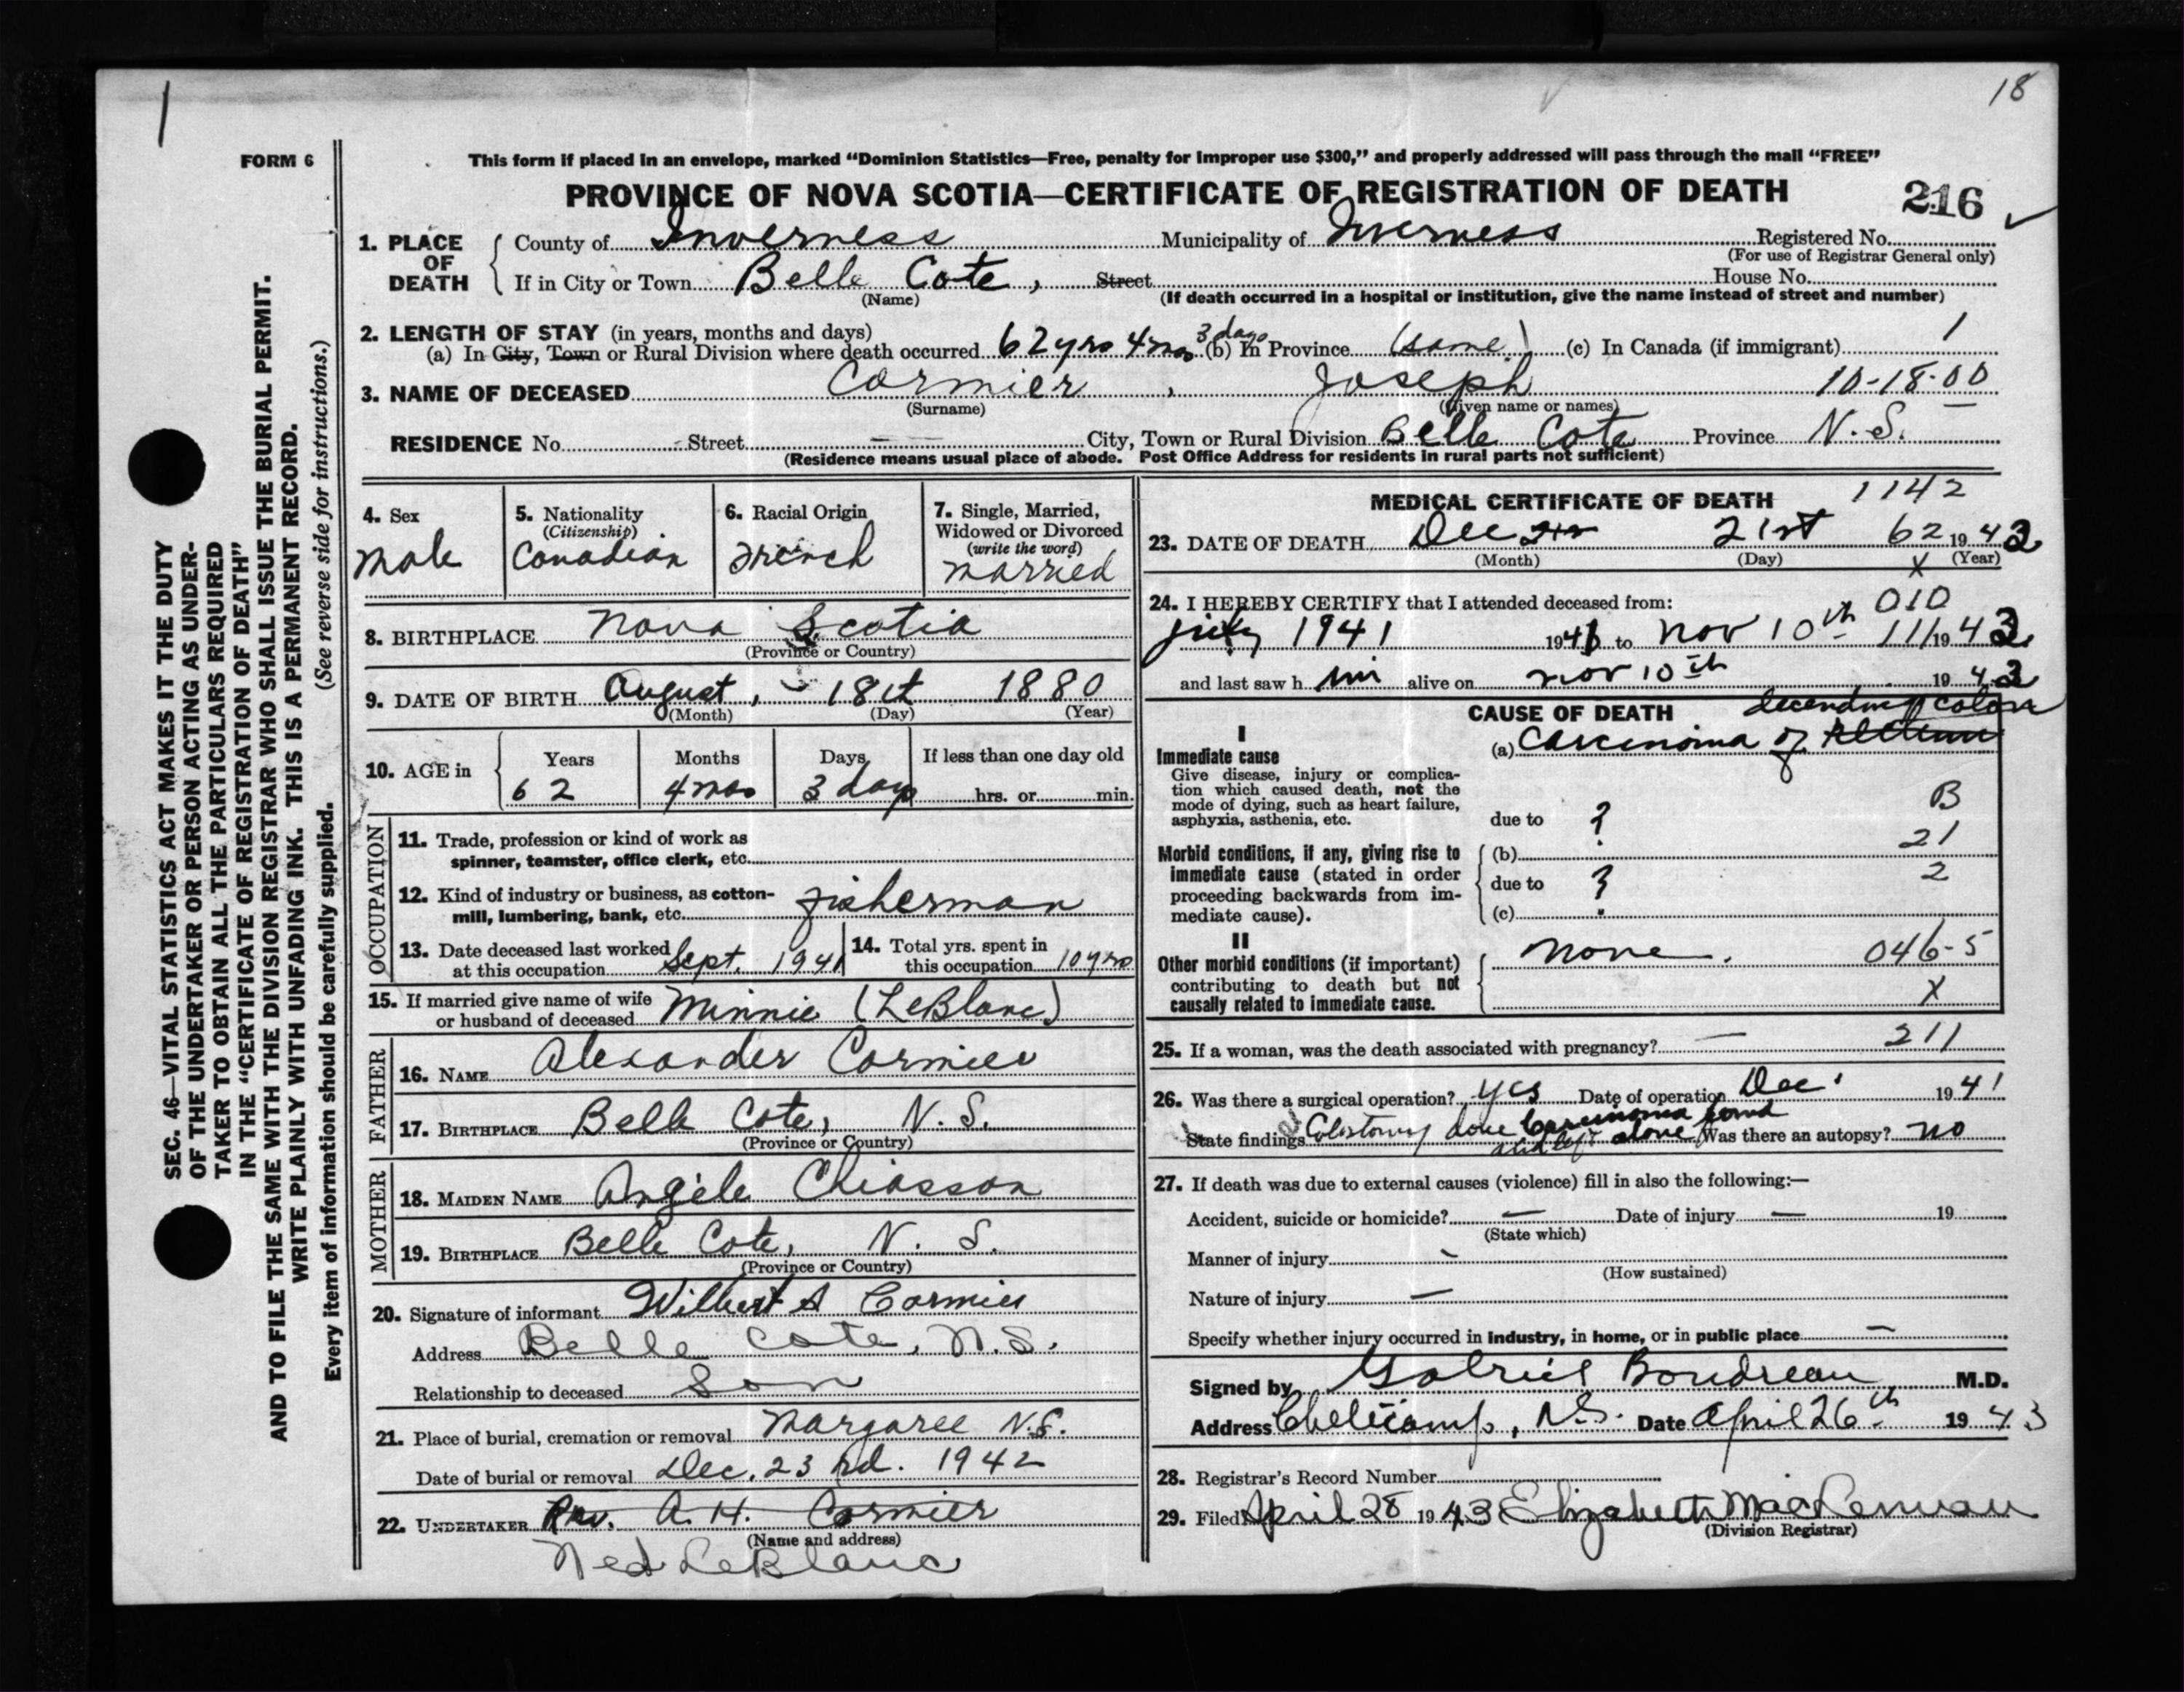 18
FORM 6
This form if placed in an envelope, marked “Dominion Statistics—Free, penalty for improper use $300,” and properly addressed will pass through the mail “FREE”
PROVINCE OF NOVA SCOTIA—CERTIFICATE OF REGISTRATION OF DEATH
216
1. PLACE OF DEATH
County of Inverness Municipality of Inverness Registered No.
(For use of Registrar General only)
If in City or Town Belle Cote, Street House No.
(Name) (If death occurred in a hospital or institution, give the name instead of street and number)
2. LENGTH OF STAY (in years, months and days)
(a) In City, Town or Rural Division where death occurred 62 yrs 4 mos 3 days (b) In Province (same) (c) In Canada (if immigrant) 1
3. NAME OF DECEASED Cormier, Joseph 10-18-00
(Surname) (Given name or names)
RESIDENCE No. Street City, Town or Rural Division Belle Cote Province N.S.
(Residence means usual place of abode. Post Office Address for residents in rural parts not sufficient)
4. Sex
Male
5. Nationality
(Citizenship)
Canadian
6. Racial Origin
French
7. Single, Married,
Widowed or Divorced
(write the word)
Married
8. BIRTHPLACE Nova Scotia
(Province or Country)
9. DATE OF BIRTH August, 18th 1880
(Month) (Day) (Year)
10. AGE in
Years Months Days If less than one day old
62 4 mos 3 days hrs. or min.
OCCUPATION
11. Trade, profession or kind of work as
spinner, teamster, office clerk, etc.
12. Kind of industry or business, as cotton-
mill, lumbering, bank, etc. fisherman
13. Date deceased last worked
at this occupation Sept. 1941
14. Total yrs. spent in
this occupation 10 yrs
15. If married give name of wife
or husband of deceased Minnie (LeBlanc)
FATHER
16. NAME Alexander Cormier
17. BIRTHPLACE Belle Cote, N.S.
(Province or Country)
MOTHER
18. MAIDEN NAME Angèle Chiasson
19. BIRTHPLACE Belle Cote, N. S.
(Province or Country)
20. Signature of informant Wilbert A Cormier
Address Belle Cote, N.S.
Relationship to deceased Son
21. Place of burial, cremation or removal Margaree N.S.
Date of burial or removal Dec. 23 rd. 1942
22. UNDERTAKER Rev. A. H. Cormier
(Name and address)
Ned LeBlanc
MEDICAL CERTIFICATE OF DEATH 1142
23. DATE OF DEATH Dec 21st 62 1942
(Month) (Day) X (Year)
24. I HEREBY CERTIFY that I attended deceased from: 010
July 1941 1941 to Nov 10th 111 1942
and last saw him alive on Nov 10th 1942
CAUSE OF DEATH
I
Immediate cause
Give disease, injury or complica-
tion which caused death, not the
mode of dying, such as heart failure,
asphyxia, asthenia, etc.
decending colon
(a) Carcinoma of rectum
B
due to ?
21
Morbid conditions, if any, giving rise to
immediate cause (stated in order
proceeding backwards from im-
mediate cause).
(b)
2
due to ?
(c)
II
Other morbid conditions (if important)
contributing to death but not
causally related to immediate cause.
None. 046-5
X
25. If a woman, was the death associated with pregnancy? — 211
26. Was there a surgical operation? yes Date of operation Dec. 1941
State findings Colostomy done Carcinoma found
and left alone Was there an autopsy? no
27. If death was due to external causes (violence) fill in also the following:—
Accident, suicide or homicide? — Date of injury — 19
(State which)
Manner of injury
(How sustained)
Nature of injury —
Specify whether injury occurred in industry, in home, or in public place —
Signed by Gabriel Boudreau M.D.
Address Cheticamp, N.S. Date April 26th 1943
28. Registrar's Record Number
29. Filed April 28 1943 Elizabeth MacLennan
(Division Registrar)
SEC. 46—VITAL STATISTICS ACT MAKES IT THE DUTY
OF THE UNDERTAKER OR PERSON ACTING AS UNDER-
TAKER TO OBTAIN ALL THE PARTICULARS REQUIRED
IN THE “CERTIFICATE OF REGISTRATION OF DEATH”
AND TO FILE THE SAME WITH THE DIVISION REGISTRAR WHO SHALL ISSUE THE BURIAL PERMIT.
WRITE PLAINLY WITH UNFADING INK. THIS IS A PERMANENT RECORD.
Every item of information should be carefully supplied. (See reverse side for instructions.)